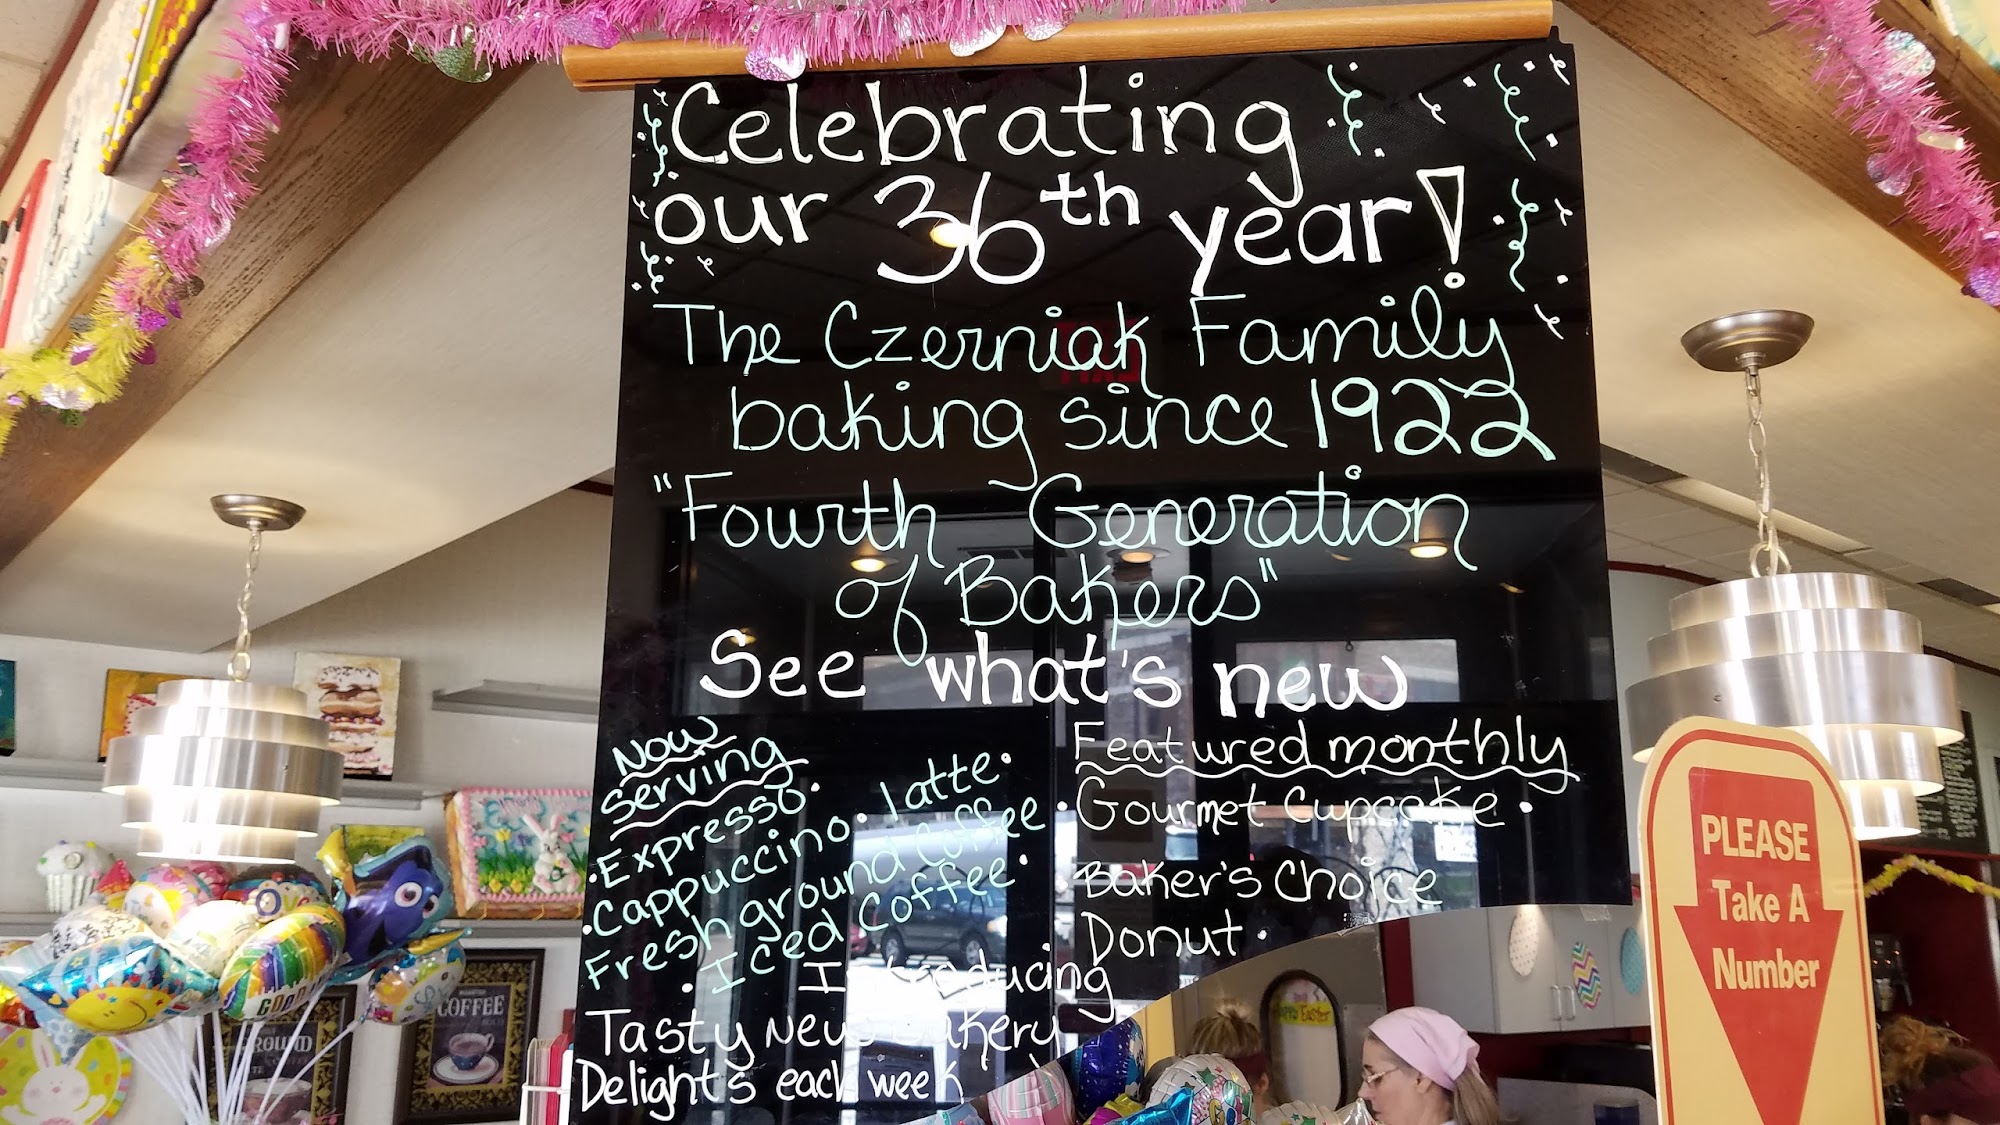 Celebrating
our 36th year!
The Czerniak Family
baking since 1922
"Fourth Generation
of Bakers"
See what's new
Now
Serving
• Expresso •
• Cappuccino • latte •
Fresh ground Coffee
• Iced Coffee •
Featured monthly
• Gourmet Cupcake •
Baker's Choice
Donut •
Introducing
Tasty New Bakery
Delights each week
PLEASE
Take A
Number
COFFEE
GROUND